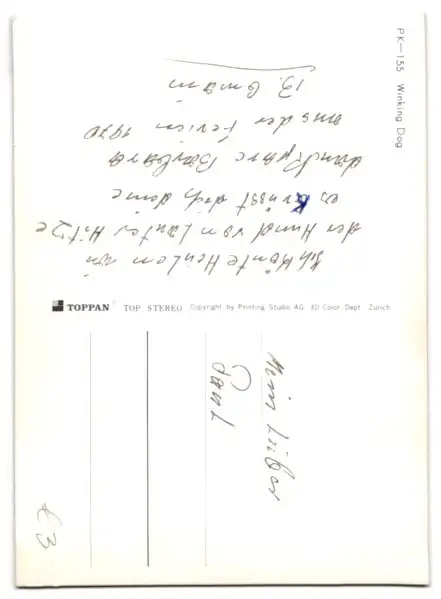 PK—155 Winking Dog
Ich könnte Heulen wie
der Hund vor lauter Hitze
es Grüsst dich deine
dankbare Barbara
aus der Ferien 1970
13.
TOPPAN TOP STEREO Copyright by Printing Studio AG 3D Color Dept. Zurich
Mein Lieber
Paul
£3